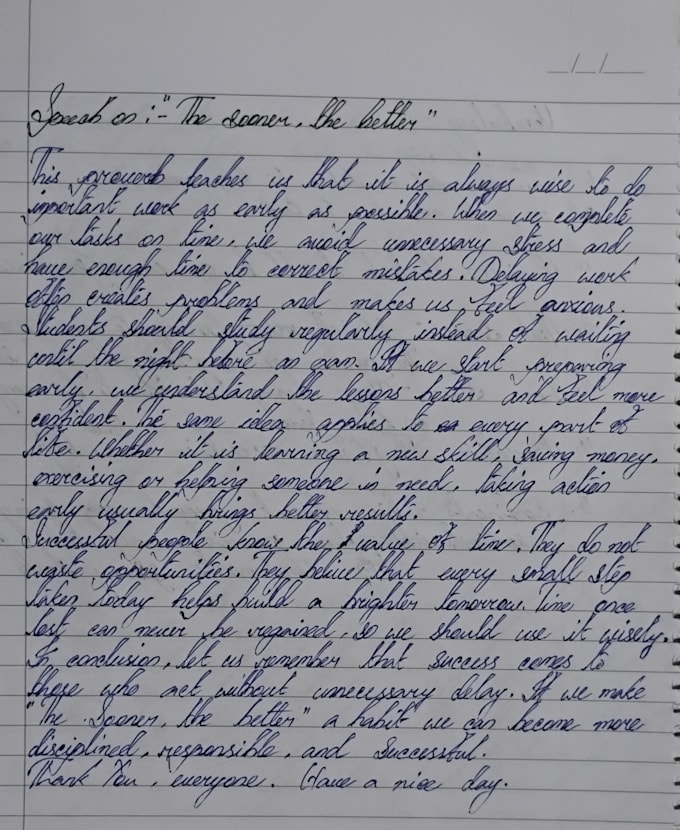 Speech on :- "The sooner, the better"
This proverb teaches us that it is always wise to do
important work as early as possible. When we complete
our tasks on time, we avoid unnecessary stress and
have enough time to correct mistakes. Delaying work
often creates problems and makes us feel anxious.
Students should study regularly instead of waiting
until the night before an exam. If we start preparing
early, we understand the lessons better and feel more
confident. The same idea applies to every part of
life. Whether it is learning a new skill, saving money,
exercising or helping someone in need, taking action
early usually brings better results.
Successful people know the value of time. They do not
waste opportunities. They belive that every small step
taken today helps build a brighter tomorrow. Time once
lost can never be regained, so we should use it wisely.
In conclusion, let us remember that success comes to
those who act without unnecessary delay. If we make
"The Sooner, the better" a habit we can become more
disciplined, responsible, and successful.
Thank You, everyone. Have a nice day.